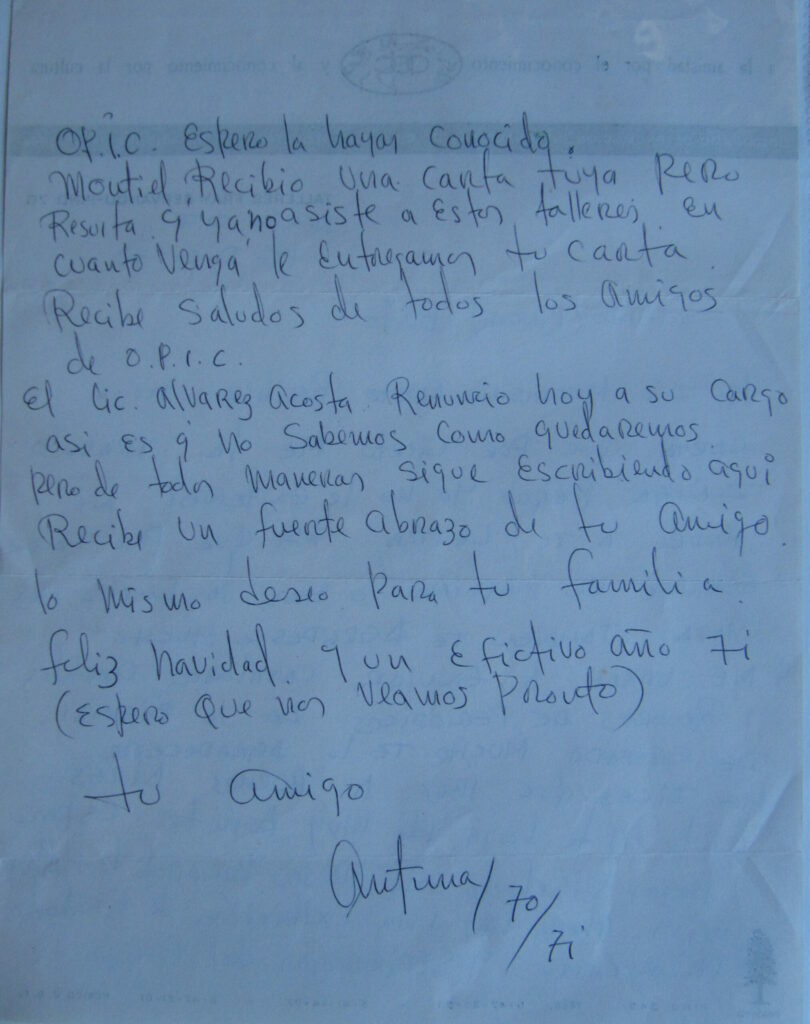 O.P.I.C. Espero la hayas conocido.
Montiel Recibio una carta tuya pero
Resulta q ya no asiste a Estos talleres, en
cuanto venga le Entregamos tu carta
Recibe saludos de todos los amigos
de O.P.I.C.
El Lic. Alvarez Acosta Renuncio hoy a su cargo
asi es q no sabemos como quedaremos
pero de todas maneras sigue Escribiendo aqui
Recibe un fuerte abrazo de tu amigo.
lo mismo deseo para tu familia.
feliz navidad. y un Efictivo año 71
(Espero que nos veamos pronto)
tu amigo
Antuna/70/71